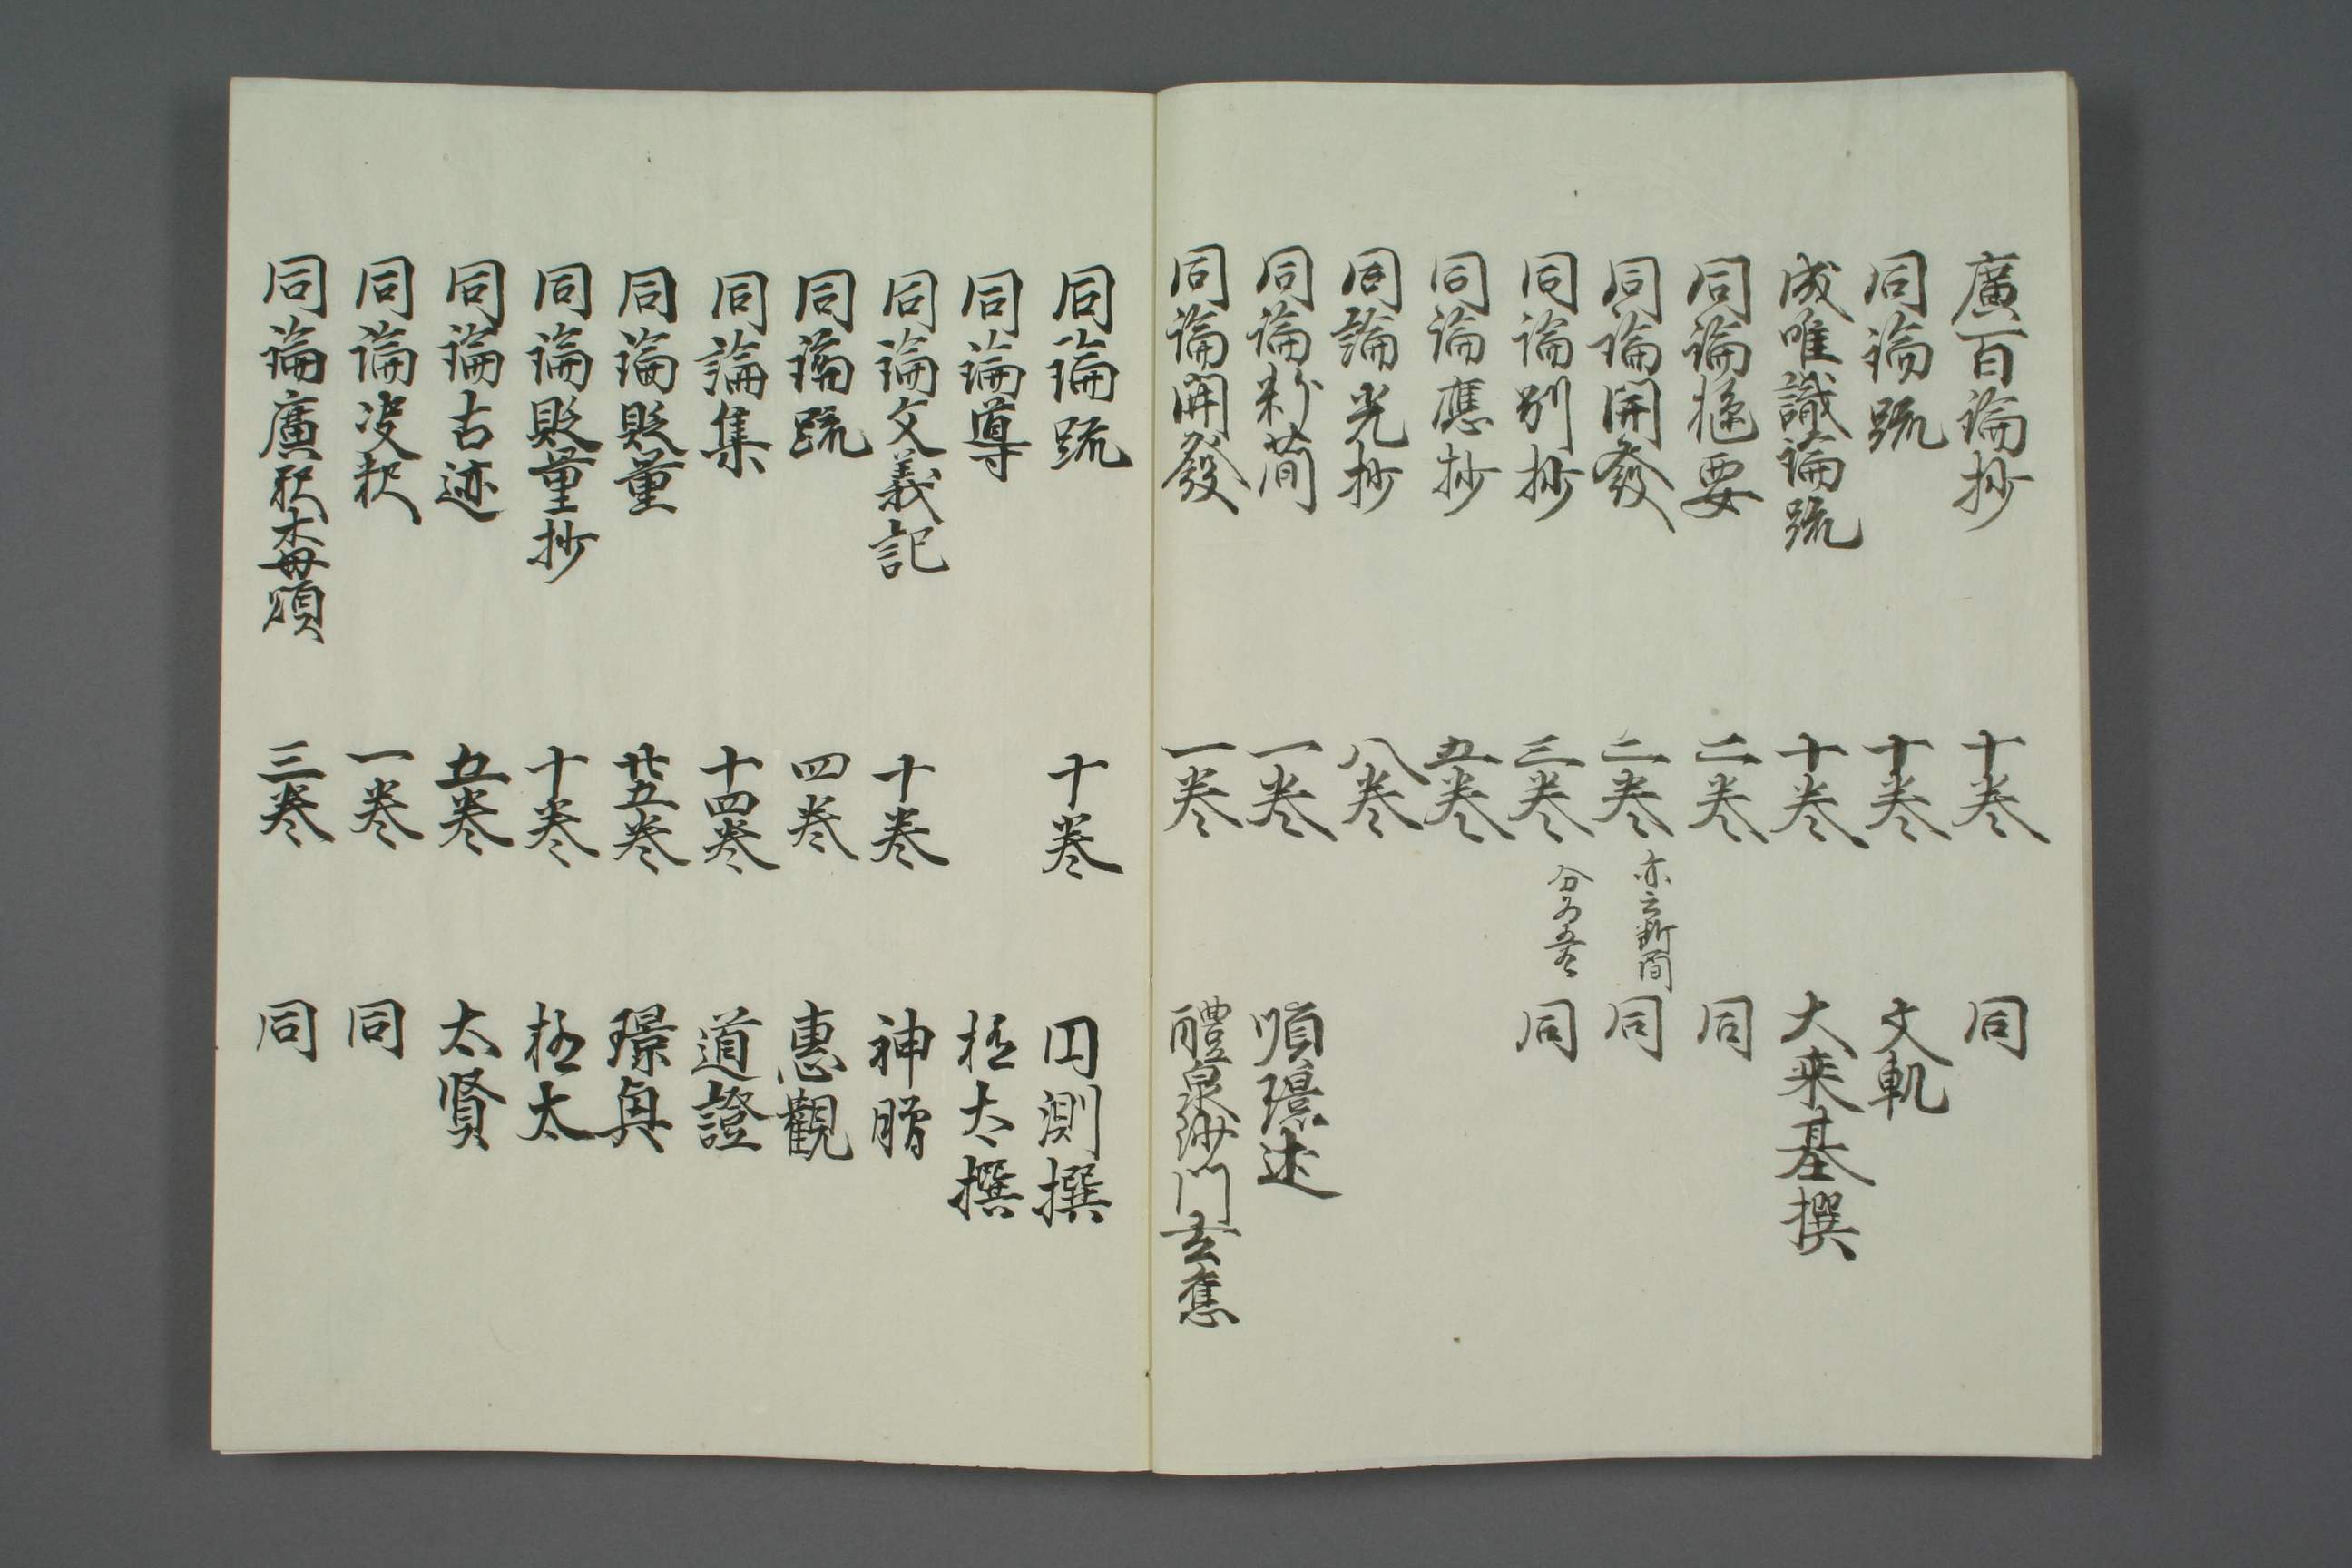 廣百論抄 十巻 同
同論疏 十巻 文軌
成唯識論疏 十巻 大乗基撰
同論樞要 二巻 同
同論開發 二巻 亦云新簡 同
同論別抄 三巻 同
同論應抄 五巻
同論光抄 八巻
同論料蕳 一巻 順璟述
同論開發 一巻 醴泉沙門玄
同論疏 十巻 円測撰
同論導 極太撰
同論文義記 十巻 神
同論疏 四巻 惠觀
同論集 十四巻 道證
同論貶量 廿五巻 璟興
同論貶量抄 十巻 極太
同論古迹 五巻 太賢
同論决釈 一巻 同
同論廣釈本母頌 三巻 同